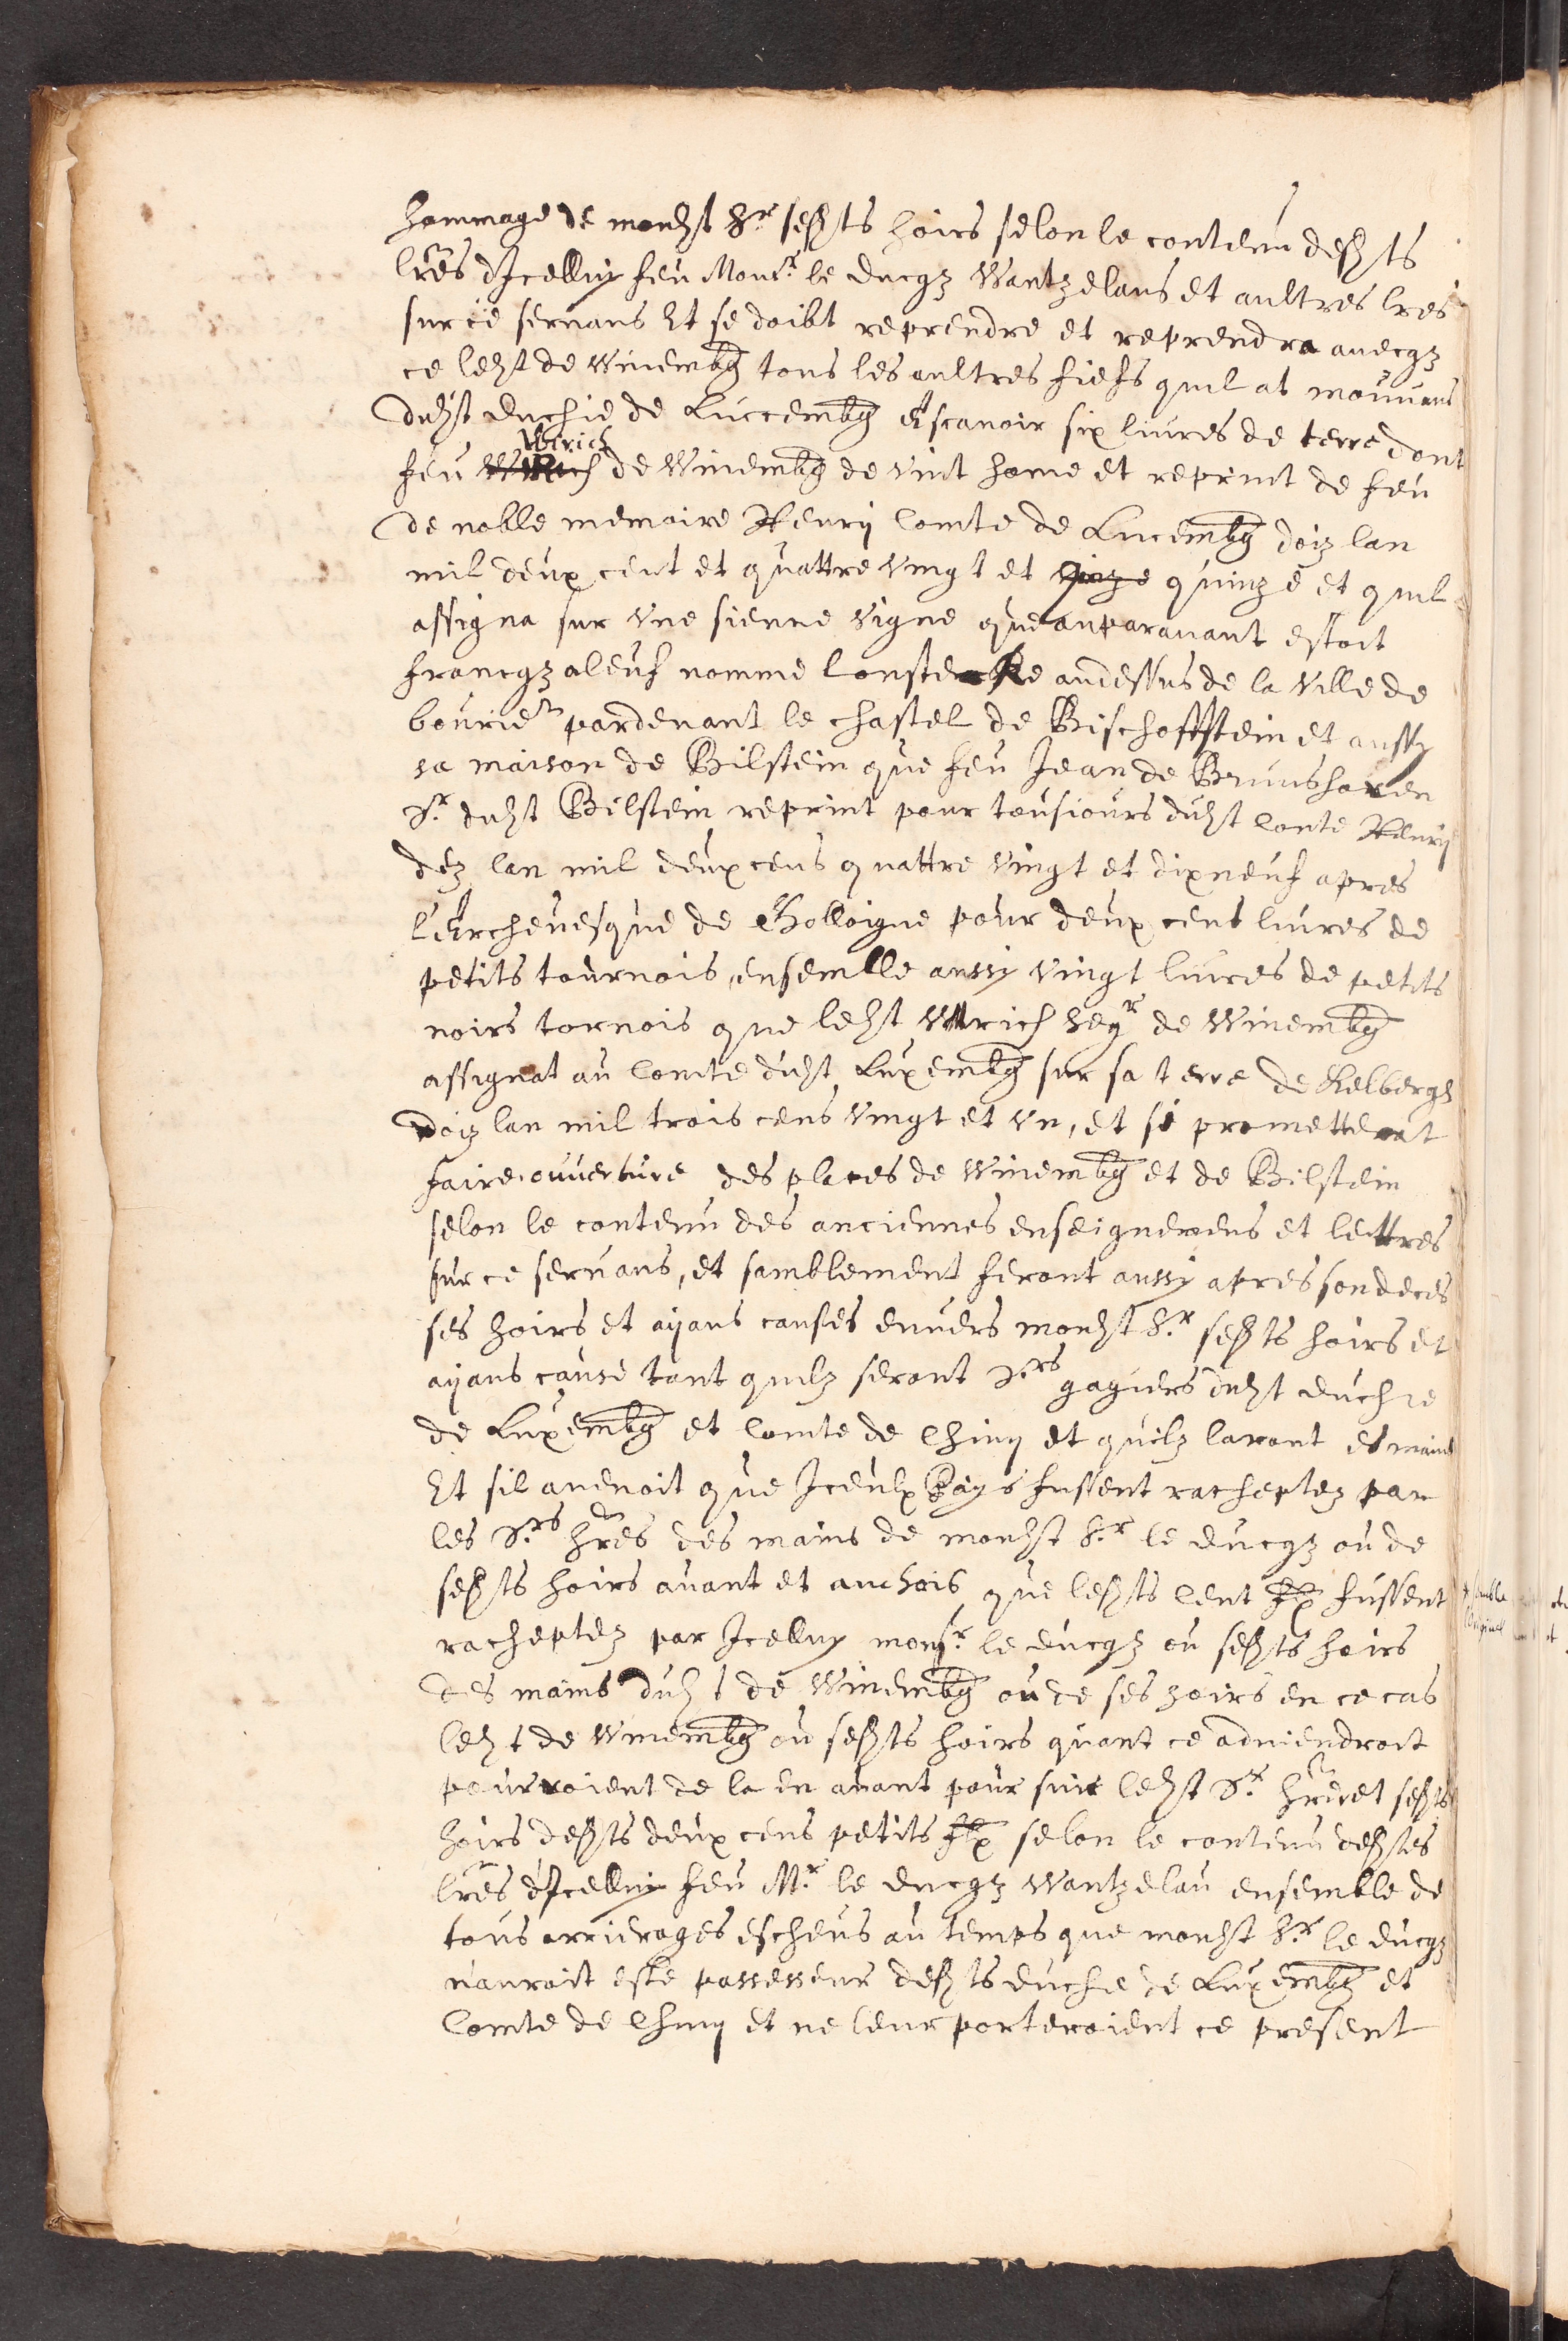 hommage de mondit Sr sesdits hoirs selon le contenu desdits
lres dicelluy feu Monsr. le ducqz Wantzelaus et aultres lres
sur ce seruans Et se doibt reprendre et reprendra auecqz
ce ledit de Winembg tous les aultres fiefs quil at mouuans
dudit duchie de Luccembg Ascauoir six liures de terre dont
Wirich
feu de Winembg de vint home et reprint de feu
de noble memoire Henry Comte de Lucembg doiz lan
mil deux cent et quattre vingt et quinze et quil
assigna sur vne sienne vigne que auparauant estoit
francqz aleuf nomme au dessus de la ville de
par deuant le chastel de Bischoffstein et aussy
sa maison de Bilstein que feu Jean de Brunshoren
Sr. dudit Bilstein reprint pour tousiours dudit Conte Henry
dez lan mil deux cens quattre vingt et dixneuf apres
l'Archeuesque de Colloigne pour deux cent liures de
petits tournois, ensemble aussy vingt liures de petits
noirs tornois que ledit Wirich segr de Winembg
assignat au Comte dudit Luxembg sur sa terre de Kelbergh
doiz lan mil trois cens vingt et vn, et si prometterat
faire ouuerture des places de Winembg et de Bilstein
selon le contenu des anciennes enseignemens et lettres
sur ce seruans, et samblement feront aussy apres son deces
ses hoirs et ayans causes enuers mondit Sr. sesdits hoirs et
ayans cause tant quilz seront Srs gagiers dudit duchie
de Luxembg et Comte de Chiny et quilz laront es mains
Et sil auenoit que Iceulx Pays fussent racheptez par
les Srs. hres des mains de mondit Sr. le ducqz ou de
sesdits hoirs auant et anchois que lesdits Cent fussent
racheptez par Icelluy monsr. le ducqz ou sesdits hoirs
des mains dudit de Winembg ou de ses hoirs en ce cas
ledit de Winembg ou sesdits hoirs quant ce aduiendroit
pourroient de la en auant poursuir ledit Sr. hre et sesdits
hoirs desdits deux cens petits selon le contenu desdites
lres d'Icelluy feu Mr. le ducqz Wantzelau ensemble de
tous arrierages escheus au temps que mondit Sr. le ducqz
n'auroit este possesseur desdits duche de Luxembg et
Comte de Chiny et ne leur porteroient ce present